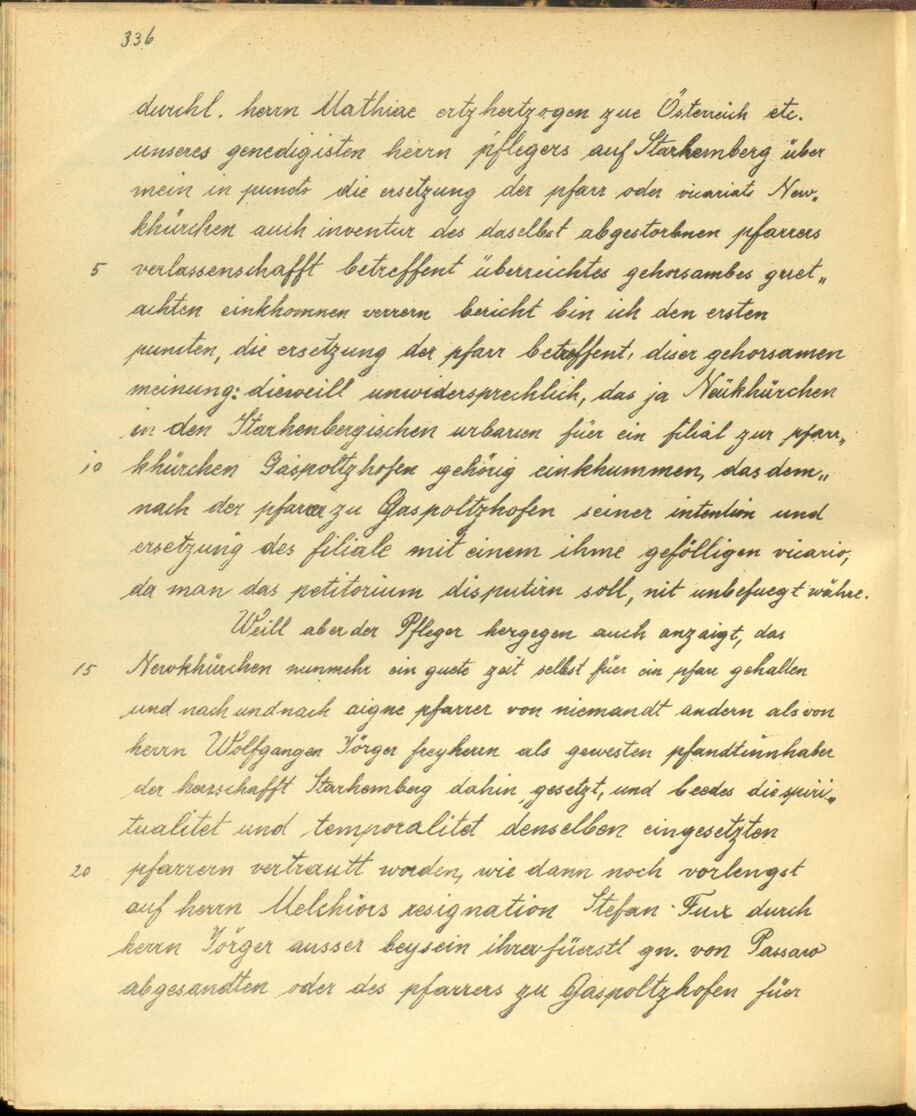 336
durchl. herrn Mathiae ertzhertzogen zue Österreich etc.
unseres genedigisten herrn pflegers auf Starhemberg über
mein in puncto die ersetzung der pfarr oder vicariats New„
khürchen auch inventur des daselbst abgestorbnen pfarrers
5 verlassenschafft betreffent überreichtes gehorsambes guet„
achten einkhomnen verrern bericht bin ich den ersten
puncten, die ersetzung der pfarr betreffent, diser gehorsamen
meinung: dieweill unwidersprechlich, das ja Neükhürchen
in den Starhenbergischen urbarien für ein filial zur pfarr„
10 khürchen Gaspoltzhofen gehörig einkhummen, das dem„
nach der pfarrer zu Gaspoltzhofen seiner intention und
ersetzung des filials mit einem ihme gefölligen vicario,
da man das petitorium disputirn soll, nit unbefuegt währe.
Weill aber der Pfleger hergegen auch anzaigt, das
15 Newkhürchen nunmehr ein guete zeit selbst für ein pfarr gehalten
und nach und nach aigne pfarrer von niemandt andern als von
herrn Wolfgangen Jörger freyherrn als gewesten pfandtinnhaber
der herrschafft Starhemberg dahin gesetzt, und beedes die spiri„
tualitet und temporalitet denselben eingesetzten
20 pfarrern vertrautt worden, wie dann noch vorlengst
auf herrn Melchiors resignation Stefan Fux durch
herrn Jörger ausser beysein ihrer füerstl gn. von Passaw
abgesandten oder des pfarrers zu Gaspoltzhofen für